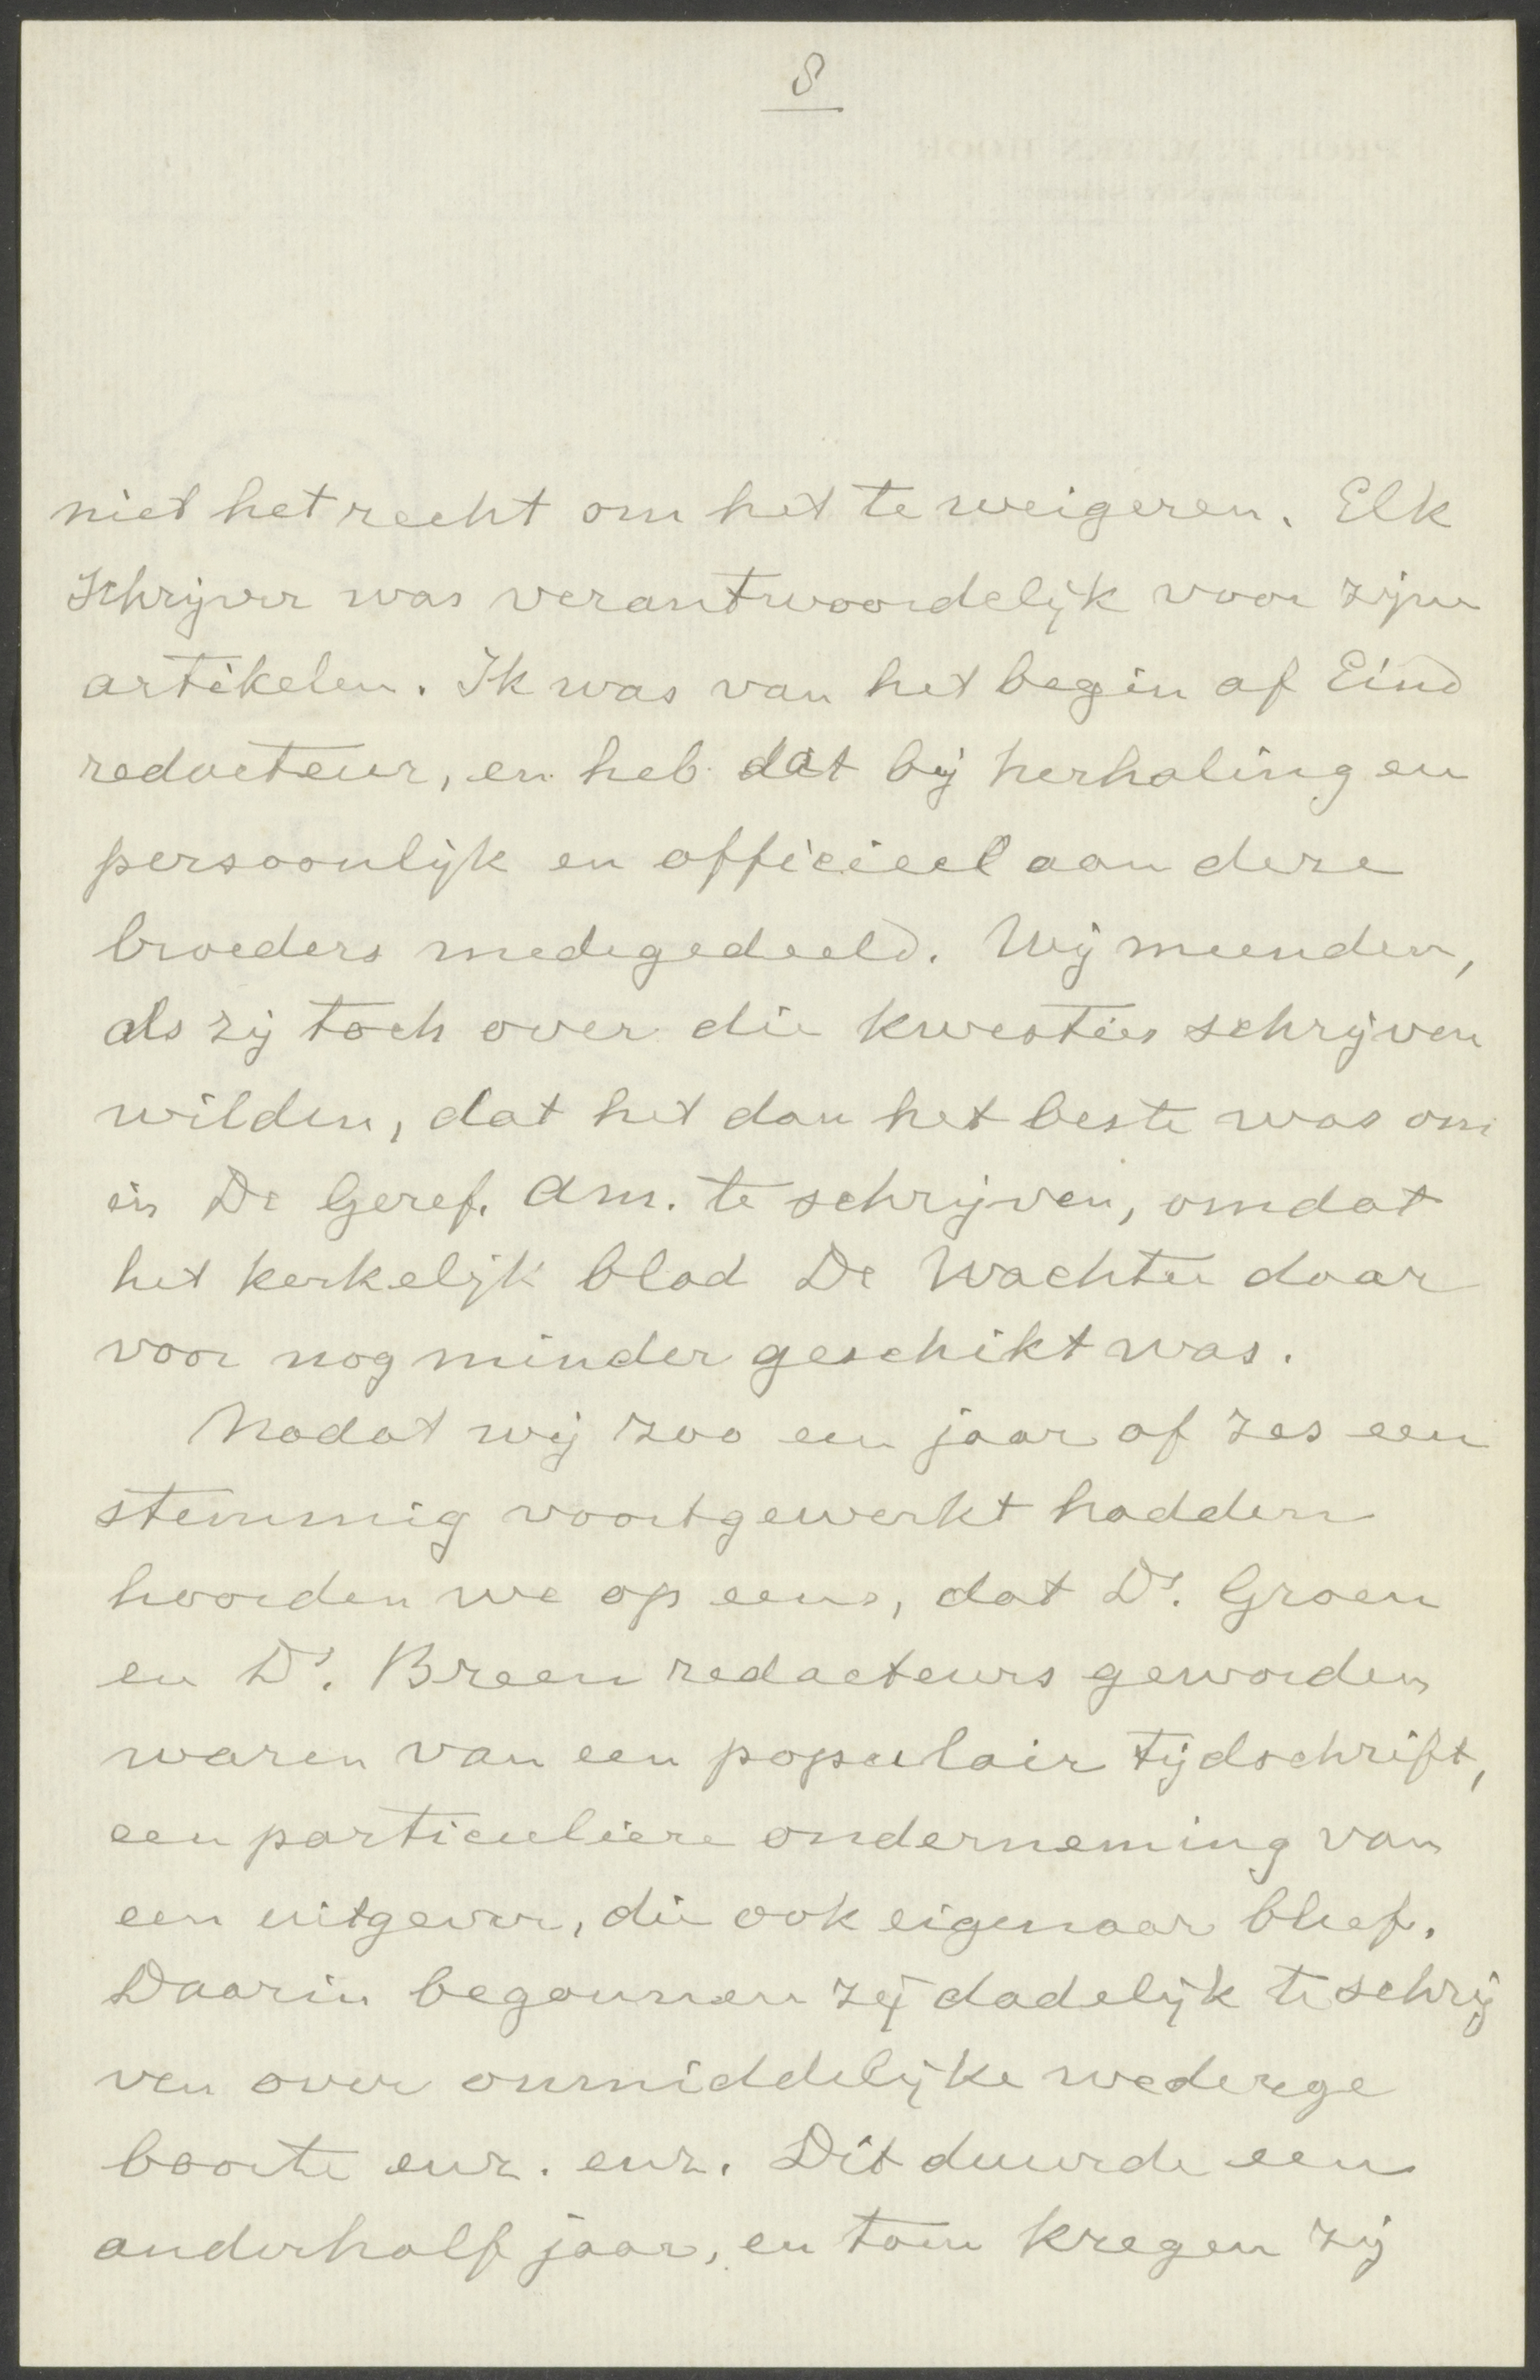 8
niet het recht om het te weigeren. Elk
schrijver was verantwoordelijk voor zijn
artikelen. Ik was van het begin af Eind
redacteur, en heb dat bij herhaling en
persoonlijk en officieel aan deze
broeders medegedeeld. Wij meenden,
als zij toch over die kwesties schrijven
wilden, dat het dan het beste was om
in De Geref. Am. te schrijven, omdat
het kerkelijk blad De Wachter daar
voor nog minder geschikt was.
Nadat wij zoo een jaar of zes een
stemmig voortgewerkt hadden
hoorden we op eens, dat Ds. Groen
en Ds. Breen redacteurs geworden
waren van een populair tijdschrift,
een particuliere onderneming van
een uitgever, die ook eigenaar bleef.
Daarin begonnen zij dadelijk te schrij
ven over onmiddelijke wederge
boorte enz. enz. Dit duurde een
anderhalf jaar, en toen kregen zij